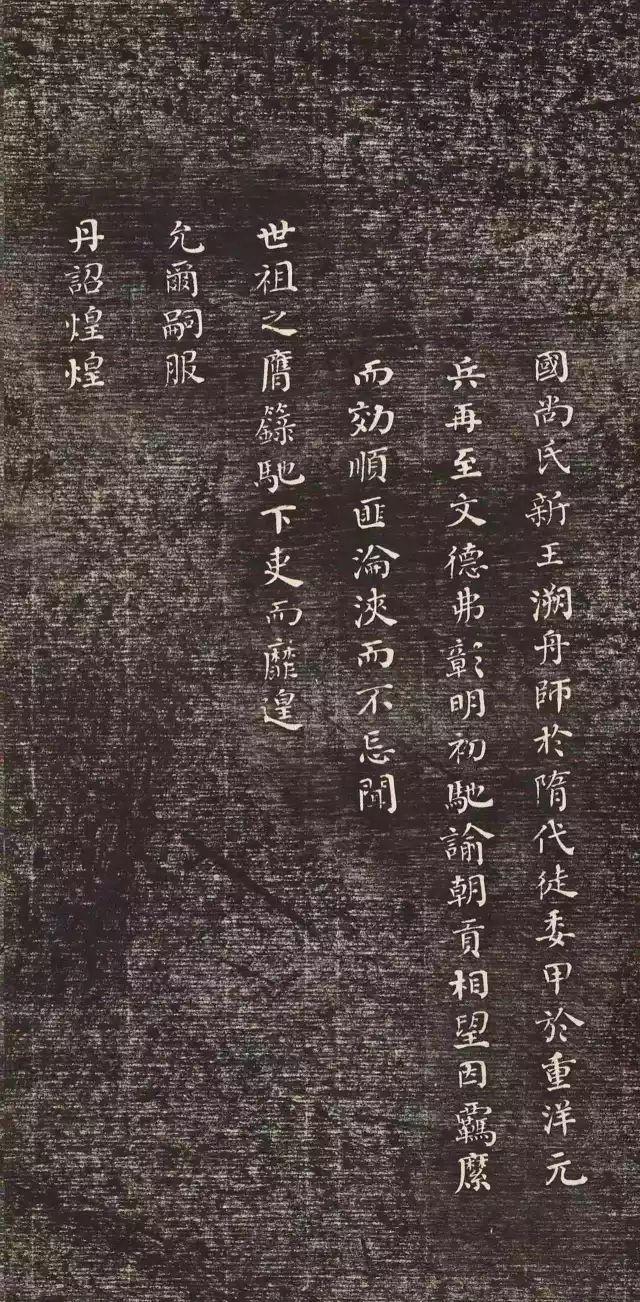 國尚氏新王溯舟師於隋代徒委甲於重洋元
兵再至文德弗彰明初馳諭朝貢相望因羈縻
而効順匪淪浹而不忘聞
世祖之膺籙馳下吏而靡遑
允爾嗣服
丹詔煌煌